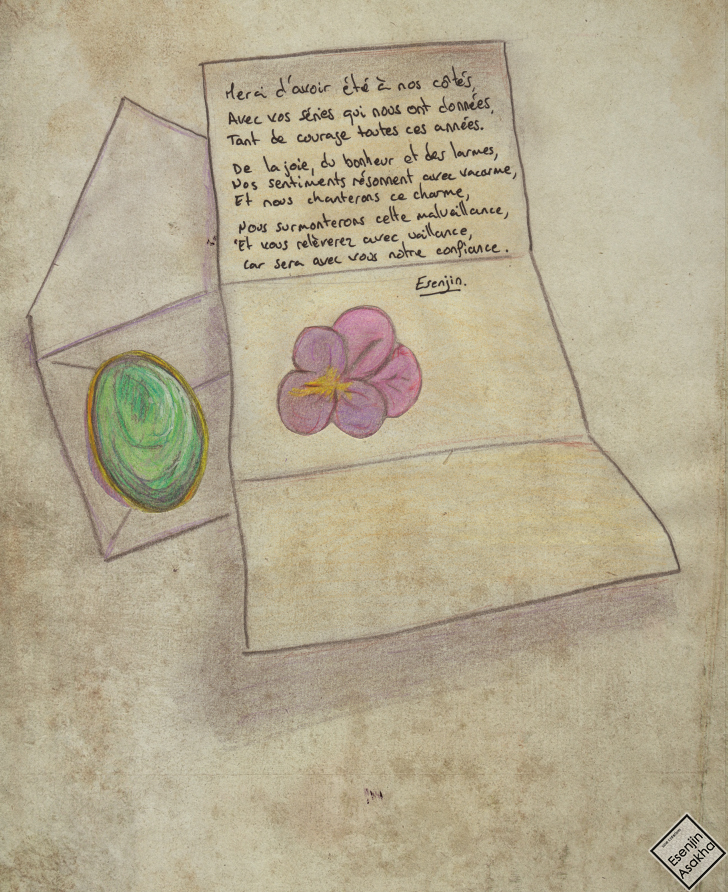 Merci d'avoir été à nos côtés,
Avec vos séries qui nous ont données,
Tant de courage toutes ces années.
De la joie, du bonheur et des larmes,
Nos sentiments résonnent avec vacarme,
Et nous chanterons ce charme,
Nous surmonterons cette malveillance,
Et vous relèverez avec vaillance,
Car sera avec vous notre confiance.
Esenjin.
Esenjin
Asakha